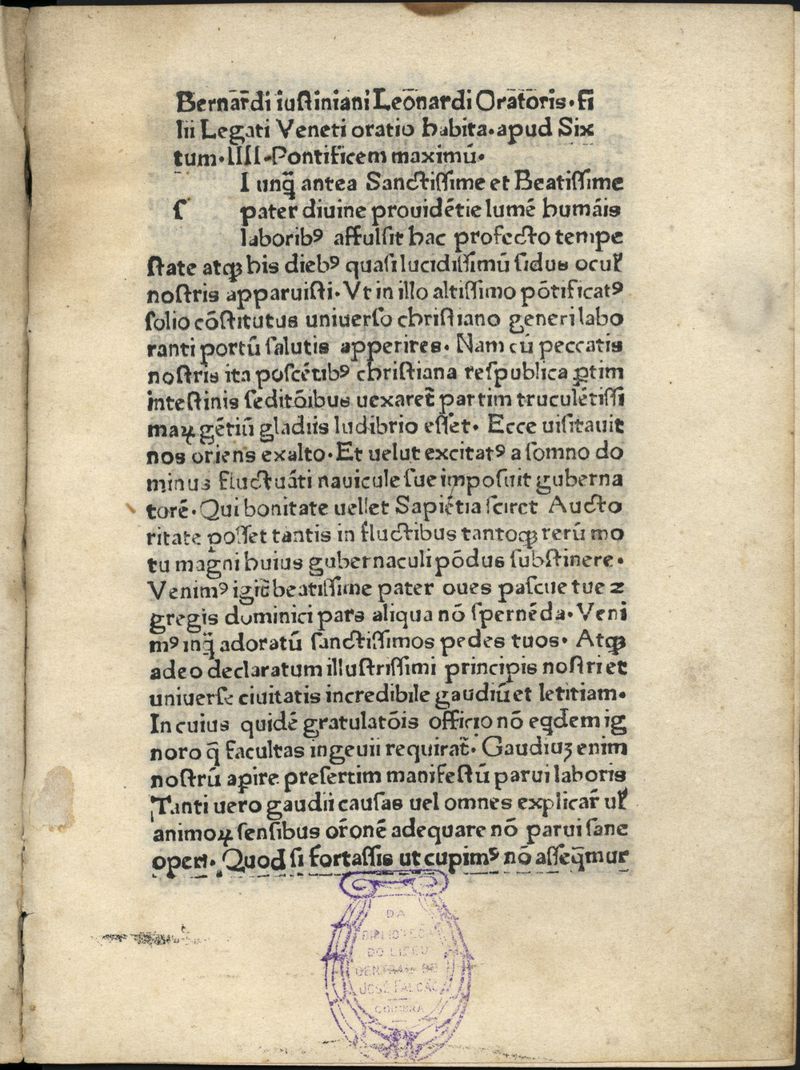 Bernar̄di iuſtiniani Leōnardi Orātōris·fi
lii Legati Veneti oratio habita·apud Six
tum·IIII·Pontificem maximū·
I unq̄ antea Sanctiſſime et Beatiſſime
ſ pater diuine prouidētie lumē humāis
laboribꝰ affulſit hac profecto tempe
ſtate atqꝫ his diebꝰ quaſi lucidiſſimū ſidus ocul̄
noſtris apparuiſti·Vt in illo altiſſimo pōtificatꝰ
ſolio cōſtitutus uniuerſo chriſtiano generi labo
ranti portū ſalutis apperires· Nam cū peccatis
noſtris ita poſcētibꝰ chriſtiana reſpublica ꝑtim
inteſtinis ſeditōibus uexaret̄ partim truculētiſſi
maꝝ gētiū gladiis ludibrio eſſet· Ecce uiſitauit
nos oriens exalto·Et uelut excitatꝰ a ſomno do
minus fluctuāti nauicule ſue impoſuit guberna
torē·Qui bonitate uellet Sapiētia ſciret Aucto
ritate poſſet tantis in fluctibus tantoqꝫ rerū mo
tu magni huius gubernaculi pōdus ſubſtinere·
Venimꝰ igit̄ beatiſſime pater oues paſcue tue ꝛ
gregis dominici pars aliqua nō ſpernēda·Veni
mꝰ inq̄ adoratū ſanctiſſimos pedes tuos· Atqꝫ
adeo declaratum illuſtriſſimi principis noſtri et
uniuerſe ciuitatis incredibile gaudiū et letitiam·
In cuius quidē gratulatōis officio nō eqdem ig
noro q̄ facultas ingeuii requirat̄· Gaudiuꝫ enim
noſtrū apire preſertim manifeſtū parui laboris
Tanti uero gaudii cauſas uel omnes explicar̄ ul̄
animoꝝ ſenſibus or̄onē adequare nō parui ſane
operi· Quod ſi fortaſſis ut cupimꝰ nō aſſeq̄mur
DA
BIBLIOTECA
DO LICEU
CENTRAL DE
JOSÉ FALCÃO
COIMBRA